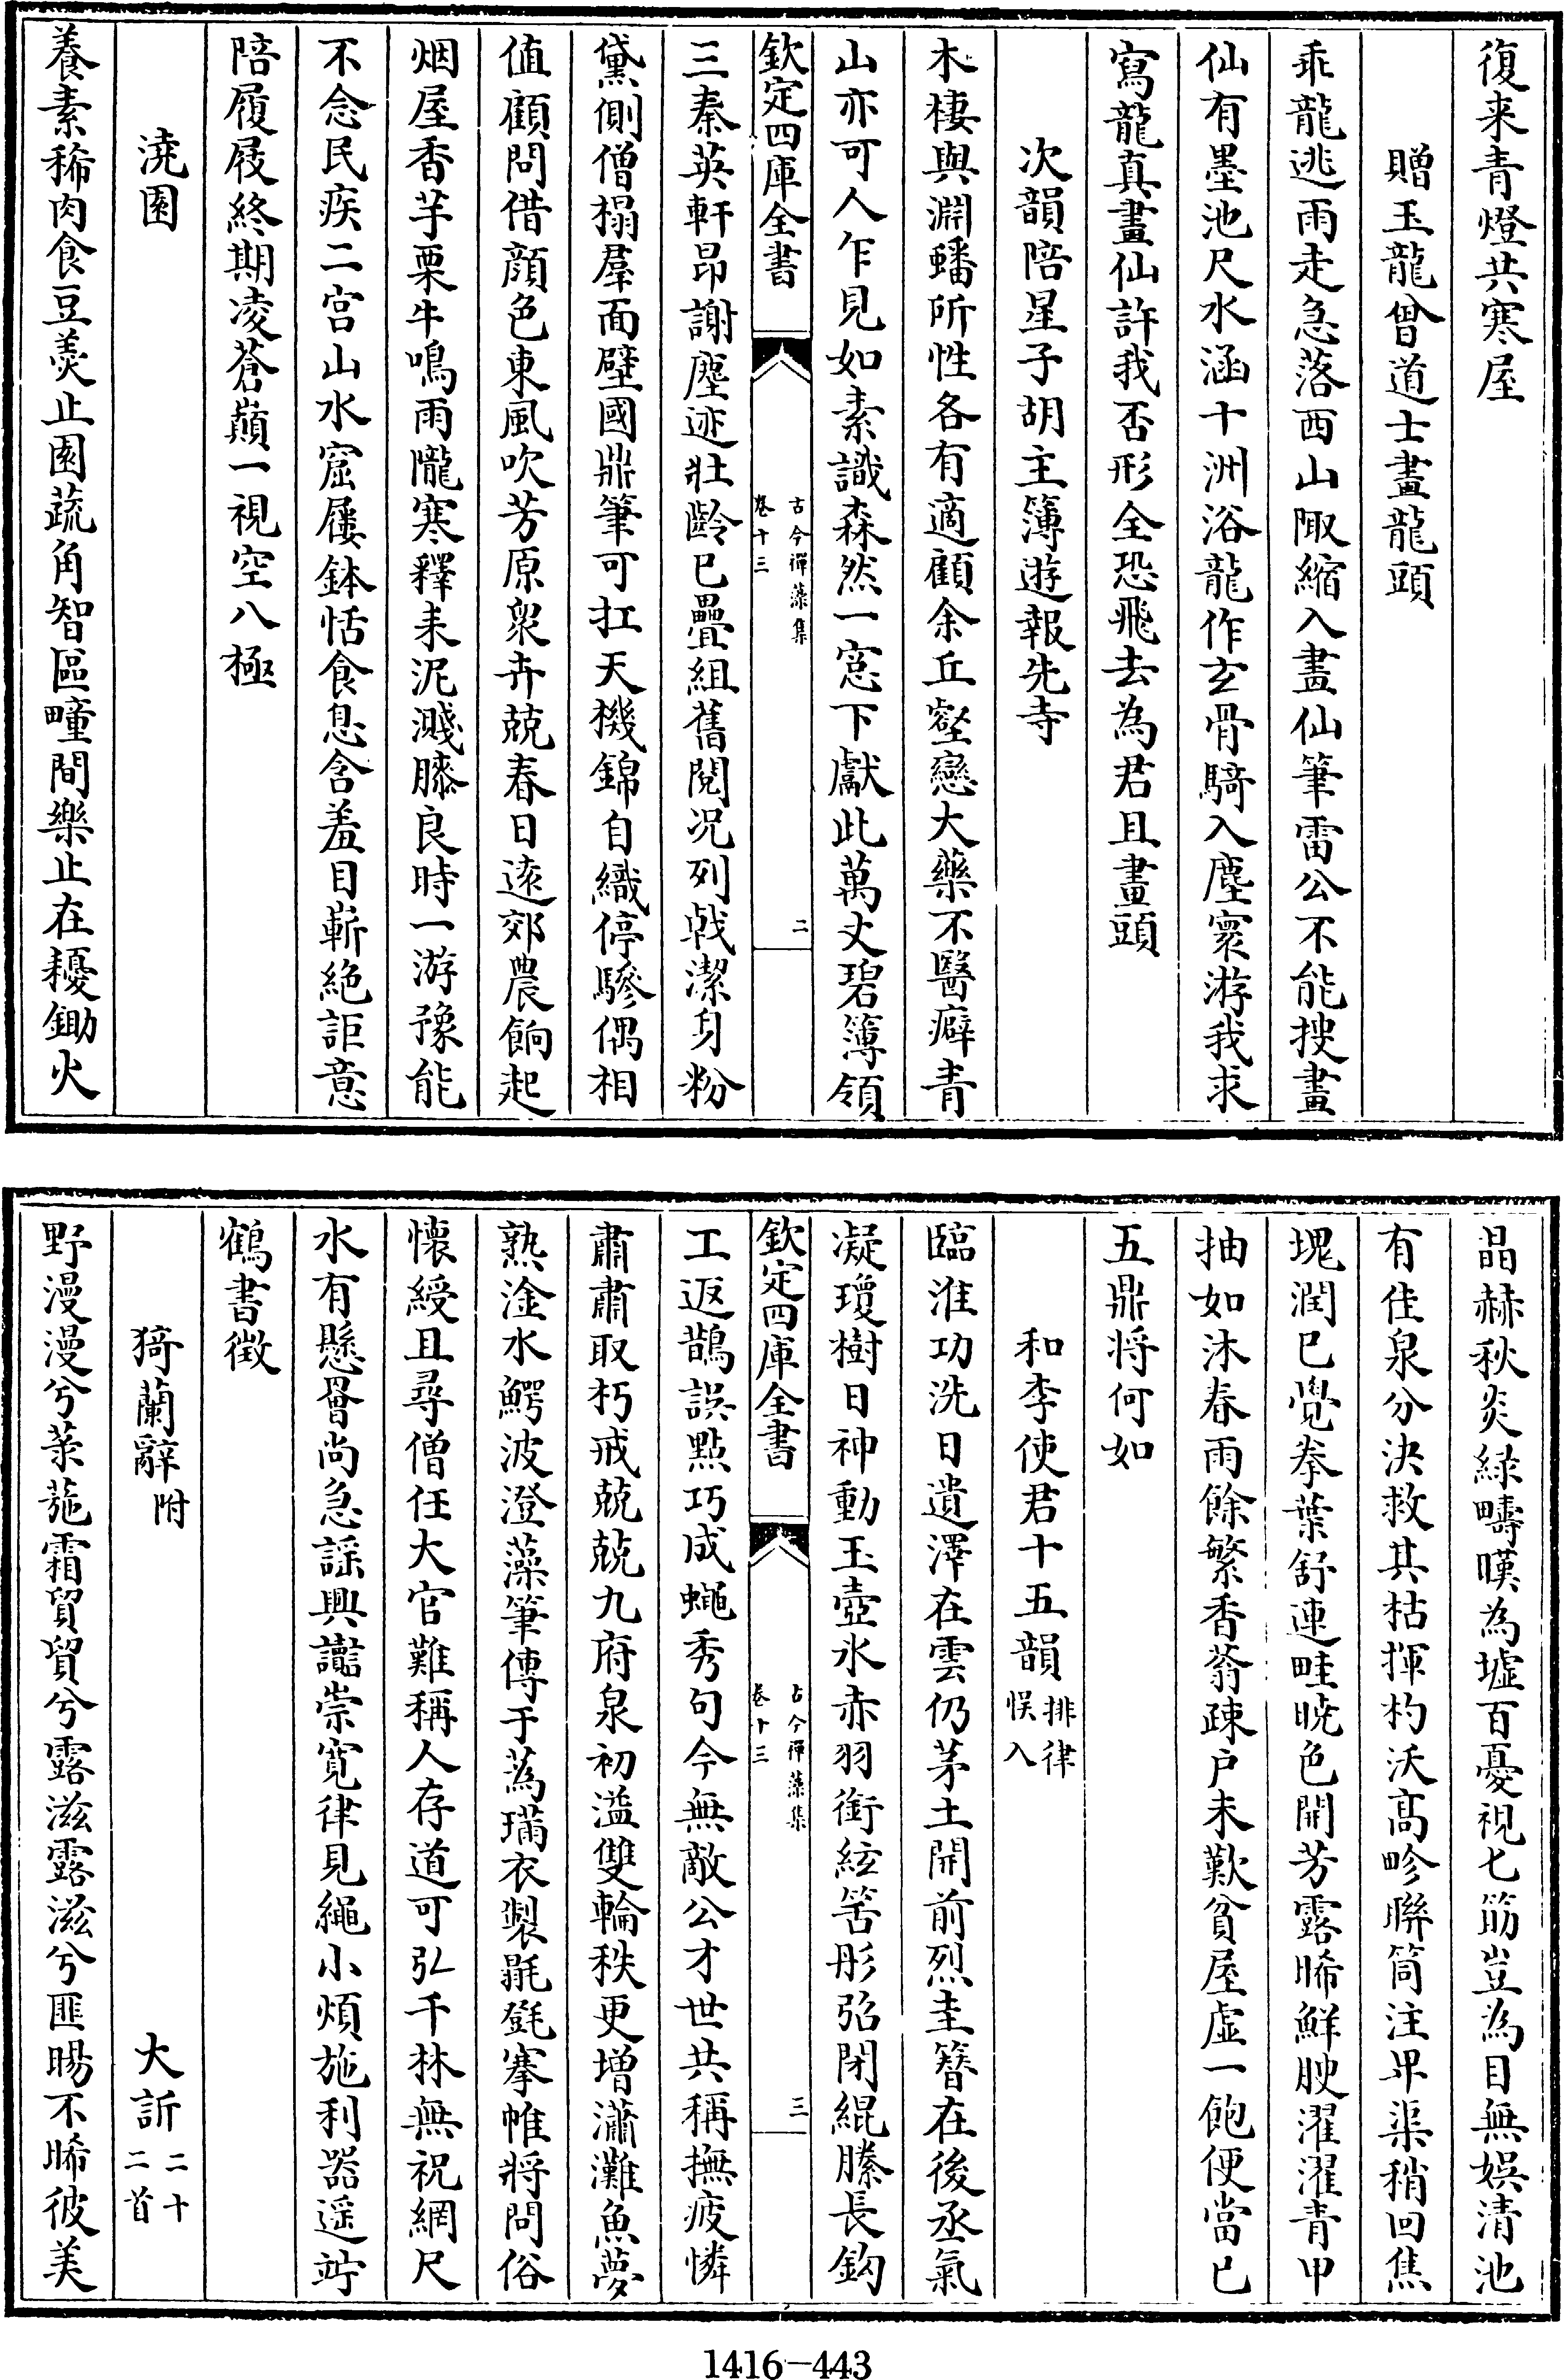 復来青燈共寒屋
贈玉龍曾道士畫龍頭
乖龍逃雨走急落西山陬縮入畫仙筆雷公不能捜畫
仙有墨池尺水涵十洲浴龍作玄骨騎入塵寰游我求
寫龍真畫仙許我否形全恐飛去為君且畫頭
次韻陪星子胡主簿遊報先寺
木棲與淵蟠所性各有適顧余丘壑戀大藥不醫癖青
山亦可人乍見如素識森然一窓下獻此萬丈碧簿領
欽定四庫全書
古今禪藻集
卷十三
二
三秦英軒昂謝塵迹壯齡已疊組舊閱况列戟潔身粉
黛側僧榻羣面壁國鼎筆可扛天機錦自織停驂偶相
值顧問借顔色東風吹芳原衆卉兢春日逺郊農餉起
烟屋香芋栗牛鳴雨隴寒釋耒泥濺膝良時一游豫能
不念民疾二宫山水窟屨鉢恬食息含羞目嶄絶詎意
陪履屐終期凌蒼巔一視空八極
澆園
養素稀肉食豆羮止園蔬角智區疃間樂止在耰鋤火
晶赫秋炎緑疇嘆為墟百憂視匕筯豈為目無娱清池
有佳泉分決救其枯揮杓沃高畛聯筒注卑渠稍回焦
塊潤已覺拳葉舒連畦晓色開芳露晞鮮腴濯濯青甲
抽如沐春雨餘繁香蓊疎户未歎貧屋虛一飽便當已
五鼎将何如
和李使君十五韻
排律
悮入
臨淮功洗日遺澤在雲仍茅土開前烈圭簪在後丞氣
凝瓊樹日神動玉壺氷赤羽銜絃筈彤弨閉緄縢長鈎
欽定四庫全書
古今禪藻集
卷十三
三
工返鵲誤㸃巧成蠅秀句今無敵公才世共稱撫疲憐
肅肅取朽戒兢兢九府泉初溢雙輪秩更增瀟灘魚夢
熟淦水鰐波澄藻筆傳于蒍璊衣製毾㲪搴帷將問俗
懐綬且尋僧任大官難稱人存道可弘千林無祝網尺
水有懸罾尚急謡興讟崇寛律見繩小煩施利器遥竚
鶴書徴
猗蘭辭附
大訢
二十
二首
野漫漫兮菉葹霜貿貿兮露滋露滋兮匪暘不晞彼美
1416—443